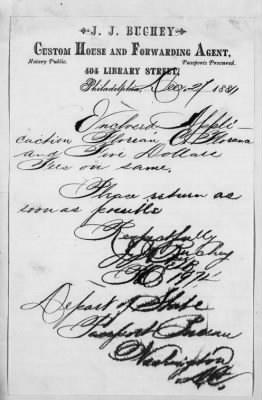 J. J. BUGHEY
CUSTOM HOUSE AND FORWARDING AGENT,
Notary Public. Passports Procured.
404 LIBRARY STREET,
Philadelphia, Dec. 27 1884
Inclosed Appli-
cation Florian C. Florance
and Five Dollars
Fees on same.
Please return as
soon as possible
Respectfully
J. J. Bughey
Depart of State
Passport Bureau
Washington
D.C.